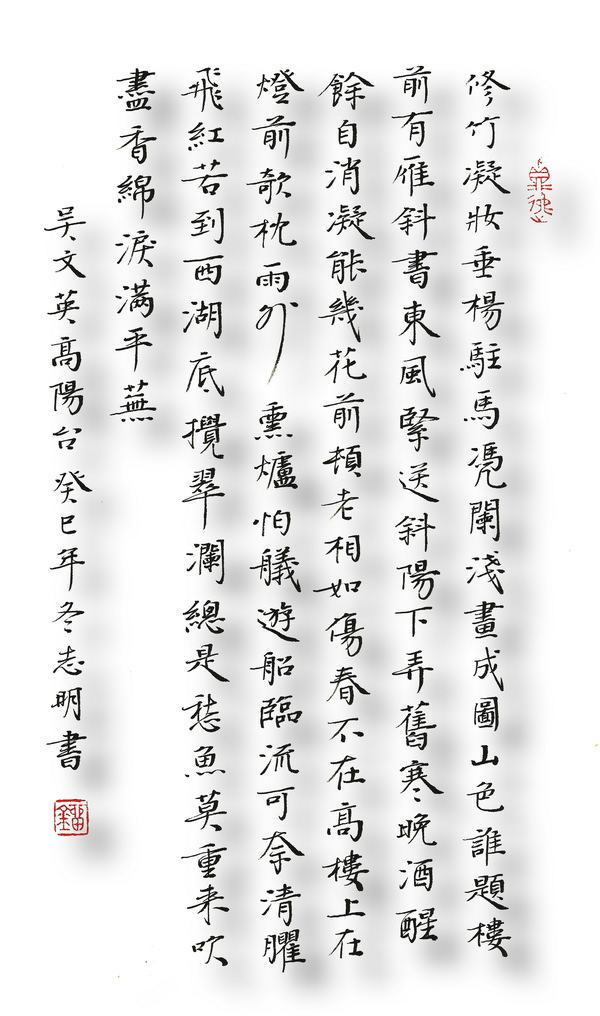 修竹凝妝垂楊駐馬凴闌淺畫成圖山色誰題樓
前有雁斜書東風緊送斜陽下弄舊寒晚酒醒
餘自消凝能幾花前頓老相如傷春不在高樓上在
燈前欹枕雨外熏爐怕艤遊船臨流可奈清臞
飛紅若到西湖底攪翠瀾總是愁魚莫重来吹
盡香綿淚滿平蕪
吳文英高陽台癸巳年冬志明書